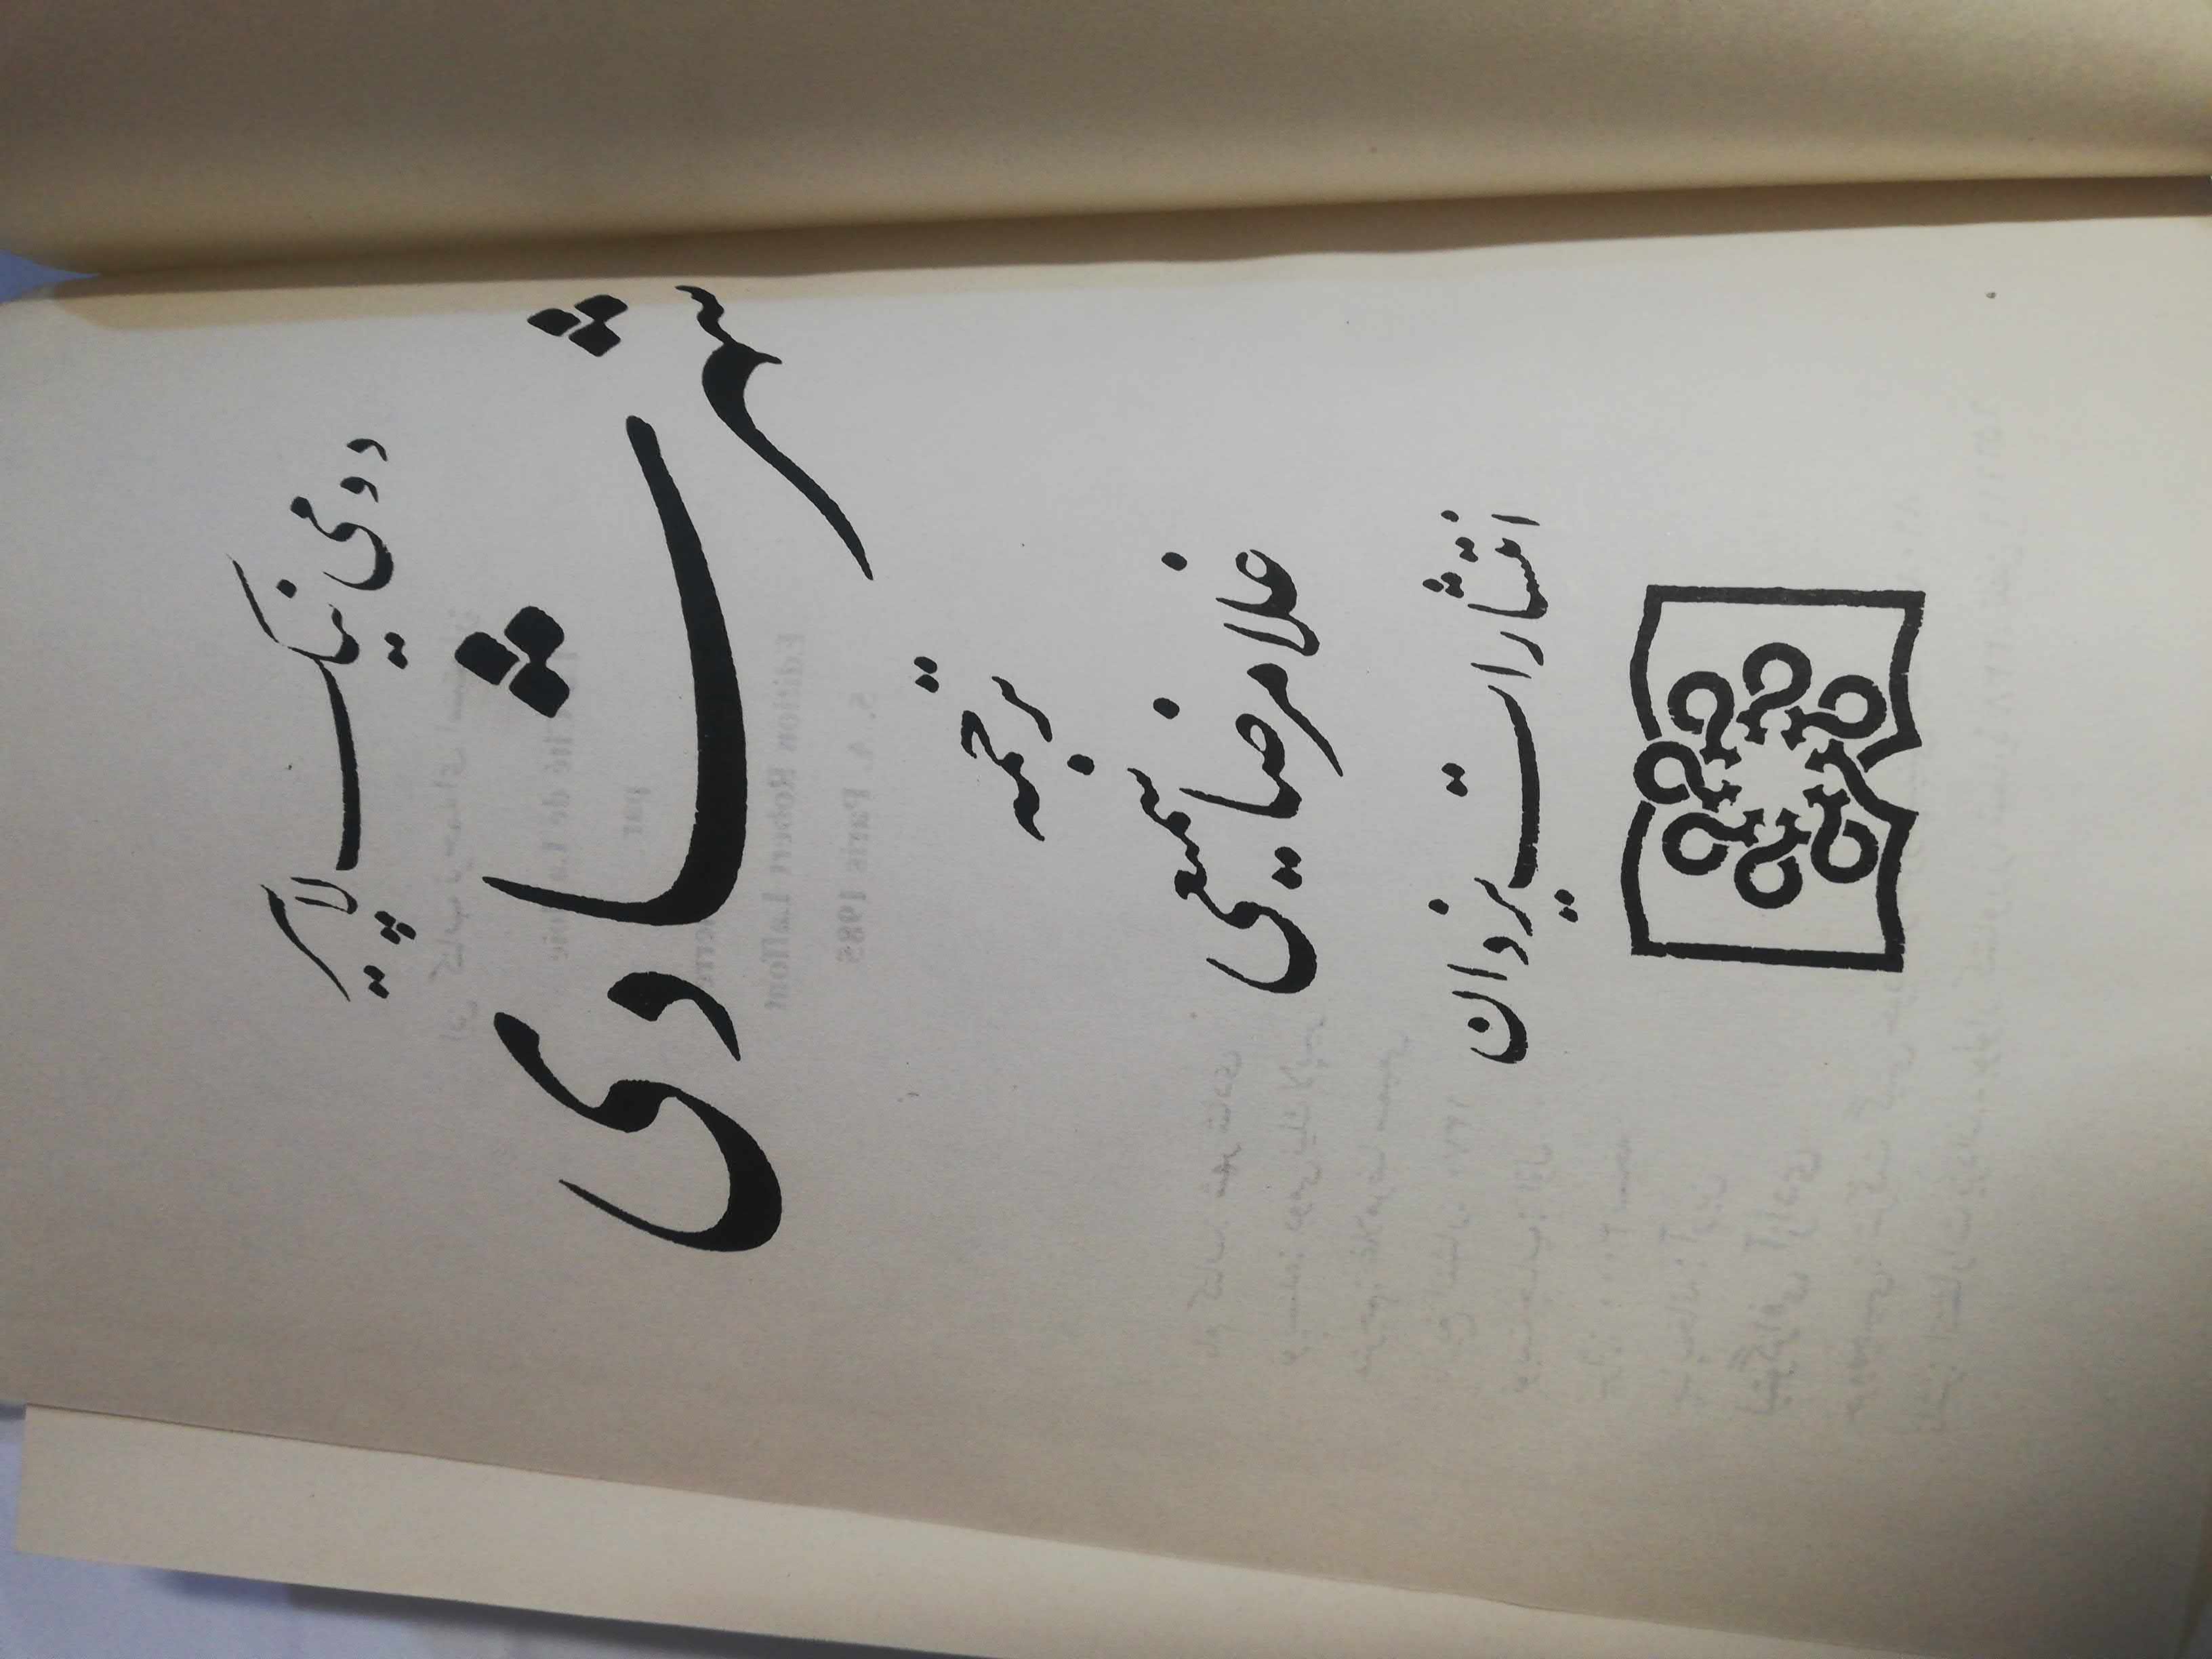 دومی‌نیک لاپیر
شهر شادی
ترجمه
غلامرضا سمیعی
انتشارات یزدان